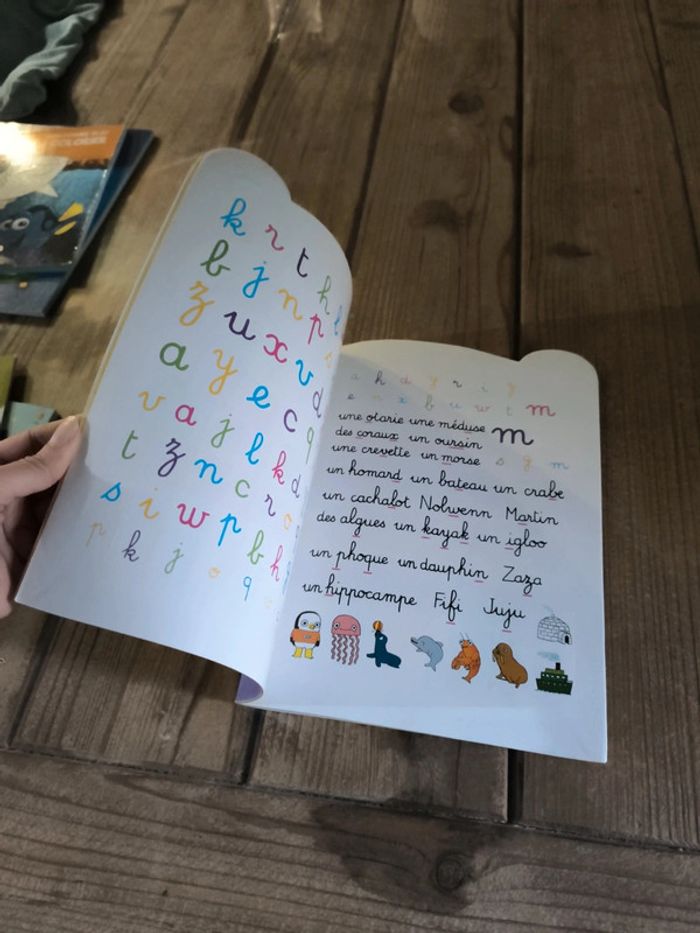 k r t h
b j n p l
z u x v
a y e c d
v a j l q
t z n c k d
s i w p r
p k j o q b h
a h d y r i y
e n x b u w t m
une otarie une méduse m
des coraux un oursin
une crevette un morse s g m
un homard un bateau un crabe
un cachalot Nolwenn Martin
des algues un kayak un igloo
un phoque un dauphin Zaza
un hippocampe Fifi Juju